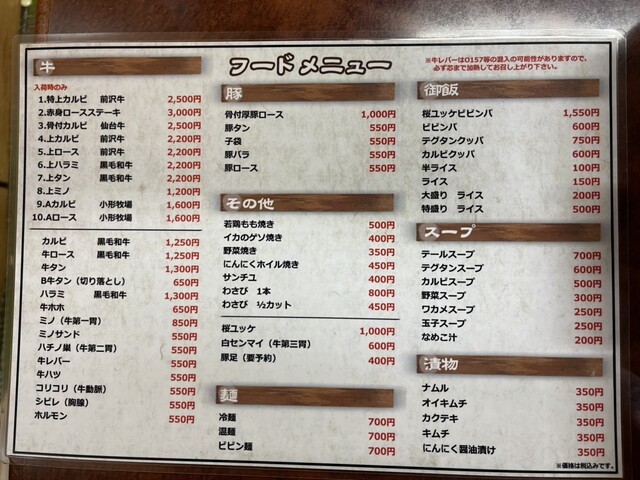 フードメニュー
※牛レバーはO157等の混入の可能性がありますので、
必ず芯まで加熱してお召し上がり下さい。
牛
入荷時のみ
1.特上カルビ 前沢牛 2,500円
2.赤身ロースステーキ 3,000円
3.骨付カルビ 仙台牛 2,500円
4.上カルビ 前沢牛 2,200円
5.上ロース 前沢牛 2,200円
6.上ハラミ 黒毛和牛 2,200円
7.上タン 黒毛和牛 2,200円
8.上ミノ 1,200円
9.Aカルビ 小形牧場 1,600円
10.Aロース 小形牧場 1,600円
カルビ 黒毛和牛 1,250円
牛ロース 黒毛和牛 1,250円
牛タン 1,300円
B牛タン（切り落とし） 650円
ハラミ 黒毛和牛 1,300円
牛ホホ 650円
ミノ（牛第一胃） 850円
ミノサンド 550円
ハチノ巣（牛第二胃） 550円
牛レバー 550円
牛ハツ 550円
コリコリ（牛動脈） 550円
シビレ（胸腺） 550円
ホルモン 550円
豚
骨付厚豚ロース 1,000円
豚タン 550円
子袋 550円
豚バラ 550円
豚ロース 550円
その他
若鶏もも焼き 500円
イカのゲソ焼き 400円
野菜焼き 350円
にんにくホイル焼き 450円
サンチユ 400円
わさび 1本 800円
わさび ½カット 450円
桜ユッケ 1,000円
白センマイ（牛第三胃） 600円
豚足（要予約） 400円
麺
冷麺 700円
温麺 700円
ビビン麺 700円
御飯
桜ユッケビビンバ 1,550円
ビビンバ 600円
テグタンクッパ 750円
カルビクッパ 600円
半ライス 100円
ライス 150円
大盛り ライス 200円
特盛り ライス 500円
スープ
テールスープ 700円
テグタンスープ 600円
カルビスープ 500円
野菜スープ 300円
ワカメスープ 250円
玉子スープ 250円
なめこ汁 200円
漬物
ナムル 350円
オイキムチ 350円
カクテキ 350円
キムチ 350円
にんにく醤油漬け 350円
※価格は税込みです。